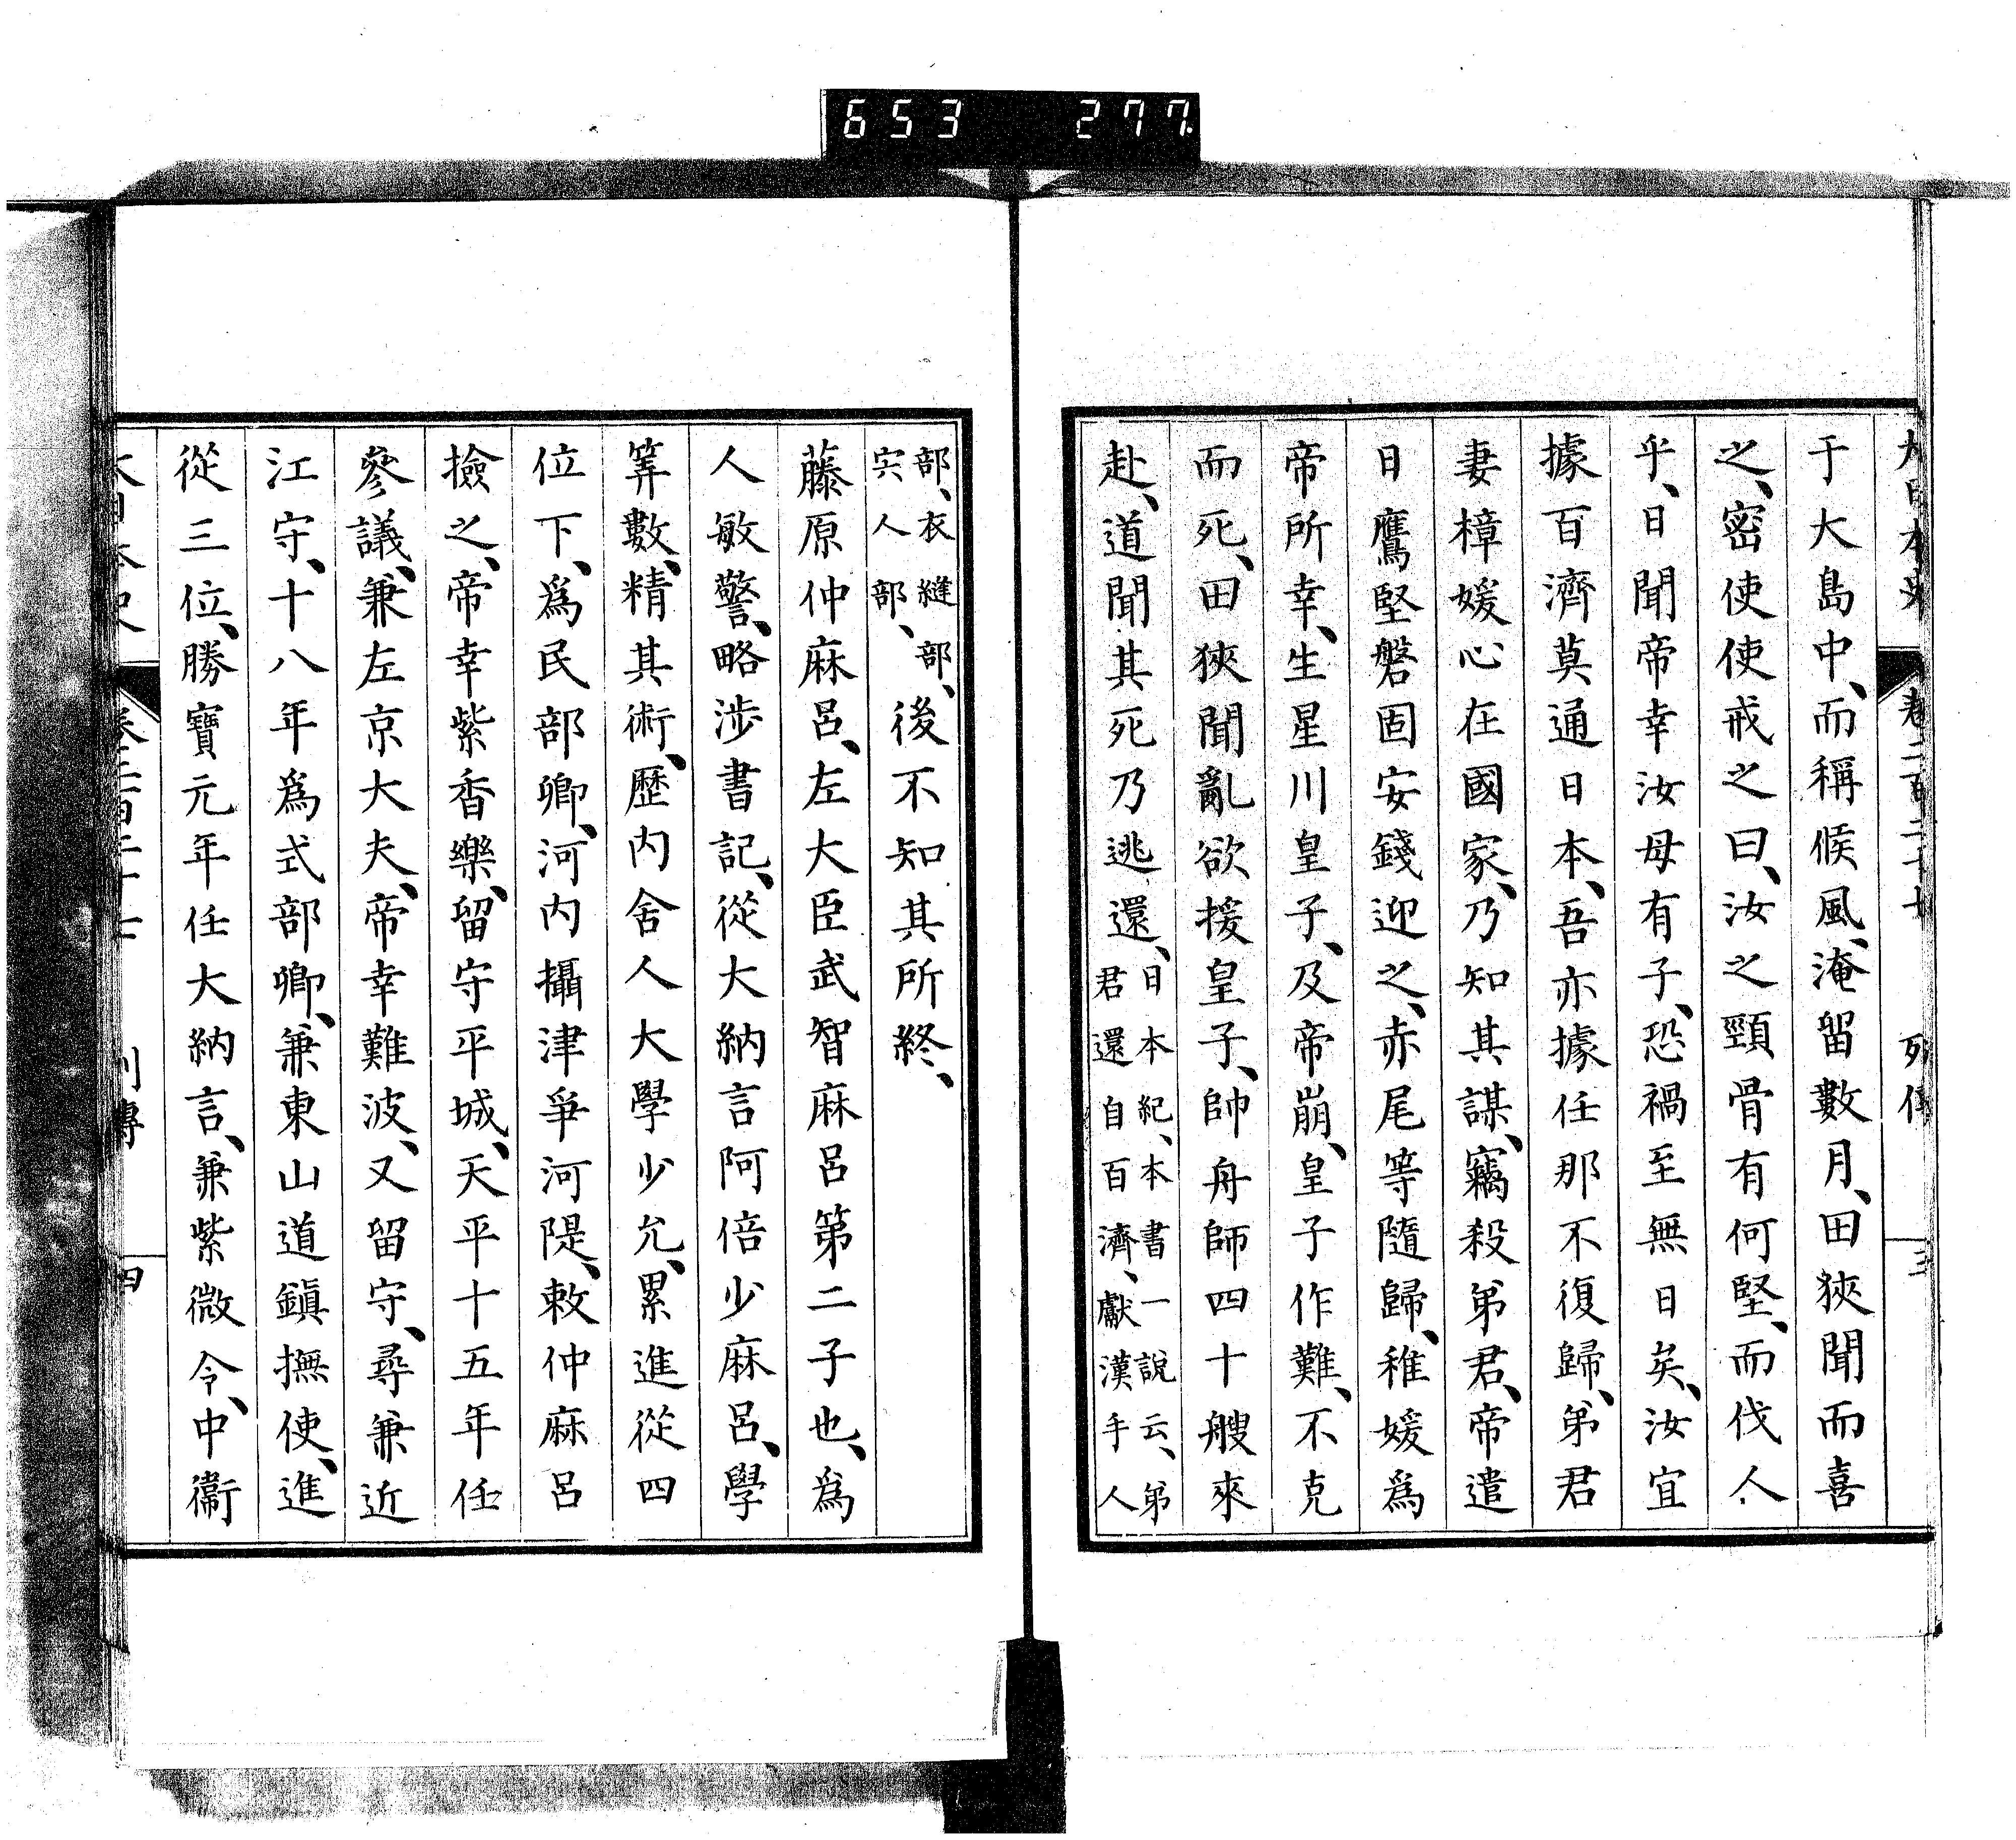 653 277
大日本史 卷二百二十七 列傳 三
于大島中、而稱候風、淹留數月、田狹聞而喜
之、密使使戒之曰、汝之頸骨有何堅、而伐人
乎、日聞帝幸汝母有子、恐禍至無日矣、汝宜
據百濟莫通日本、吾亦據任那不復歸、弟君
妻樟媛心在國家、乃知其謀、竊殺弟君、帝遣
日鷹堅磐固安錢迎之、赤尾等隨歸、稚媛爲
帝所幸、生星川皇子、及帝崩、皇子作難、不克
而死、田狹聞亂欲援皇子、帥舟師四十艘來
赴、道聞其死乃逃還、日本紀、本書一說云、弟
君還自百濟、獻漢手人
部、衣縫部、
宍人部、後不知其所終、
藤原仲麻呂、左大臣武智麻呂第二子也、爲
人敏警、略涉書記、從大納言阿倍少麻呂、學
筭數、精其術、歷內舍人大學少允、累進從四
位下、爲民部卿、河內攝津爭河隄、敕仲麻呂
撿之、帝幸紫香樂、留守平城、天平十五年任
參議、兼左京大夫、帝幸難波、又留守、尋兼近
江守、十八年爲式部卿、兼東山道鎭撫使、進
從三位、勝寶元年任大納言、兼紫微令、中衞
大日本史 卷二百二十七 列傳 四